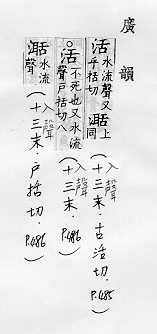 廣韻
活 水流聲又 乎括切 𣴠 上同
(入聲十三末.古活切.P.485)
○活 不死也又水流聲戶括切八
(入聲十三末.户括切.P.486)
𣴠 水流聲
(入聲十三末.户括切.P.486)